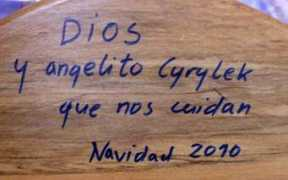 Dios
y angelito Cyrylek
que nos cuidan
Navidad 2010